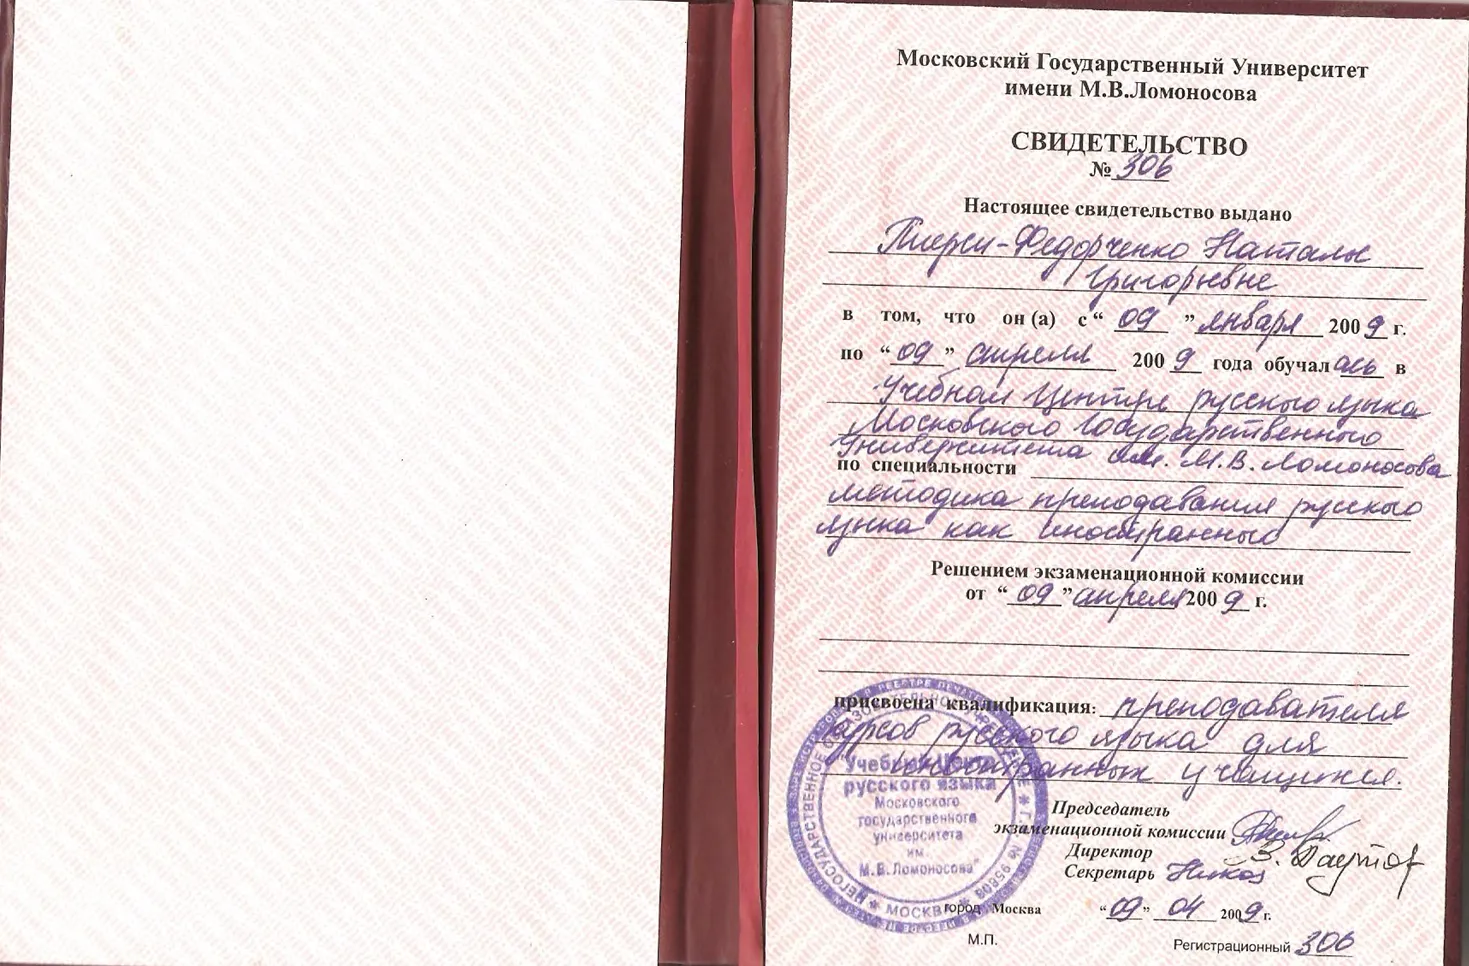 Московский Государственный Университет
имени М.В.Ломоносова
СВИДЕТЕЛЬСТВО
№ 306
Настоящее свидетельство выдано
Пирси-Федорченко Наталье
Григорьевне
в том, что он (а) с “ 09 ” января 2009 г.
по “ 09 ” апреля 2009 года обучалась в
Учебном Центре русского языка
Московского Государственного
Университета им. М.В. Ломоносова
по специальности
методика преподавания русского
языка как иностранного
Решением экзаменационной комиссии
от “ 09 ” апреля 2009 г.
присвоена квалификация: преподавателя
курсов русского языка для
иностранных учащихся.
"Учебный Центр
русского языка
Московского
государственного
университета
им.
М.В.Ломоносова"
НЕГОСУДАРСТВЕННОЕ ОБРАЗОВАТЕЛЬНОЕ УЧРЕЖДЕНИЕ
МОСКВА
Председатель
экзаменационной комиссии
Директор
Секретарь
город Москва “09” 04 2009 г.
М.П.
Регистрационный 306